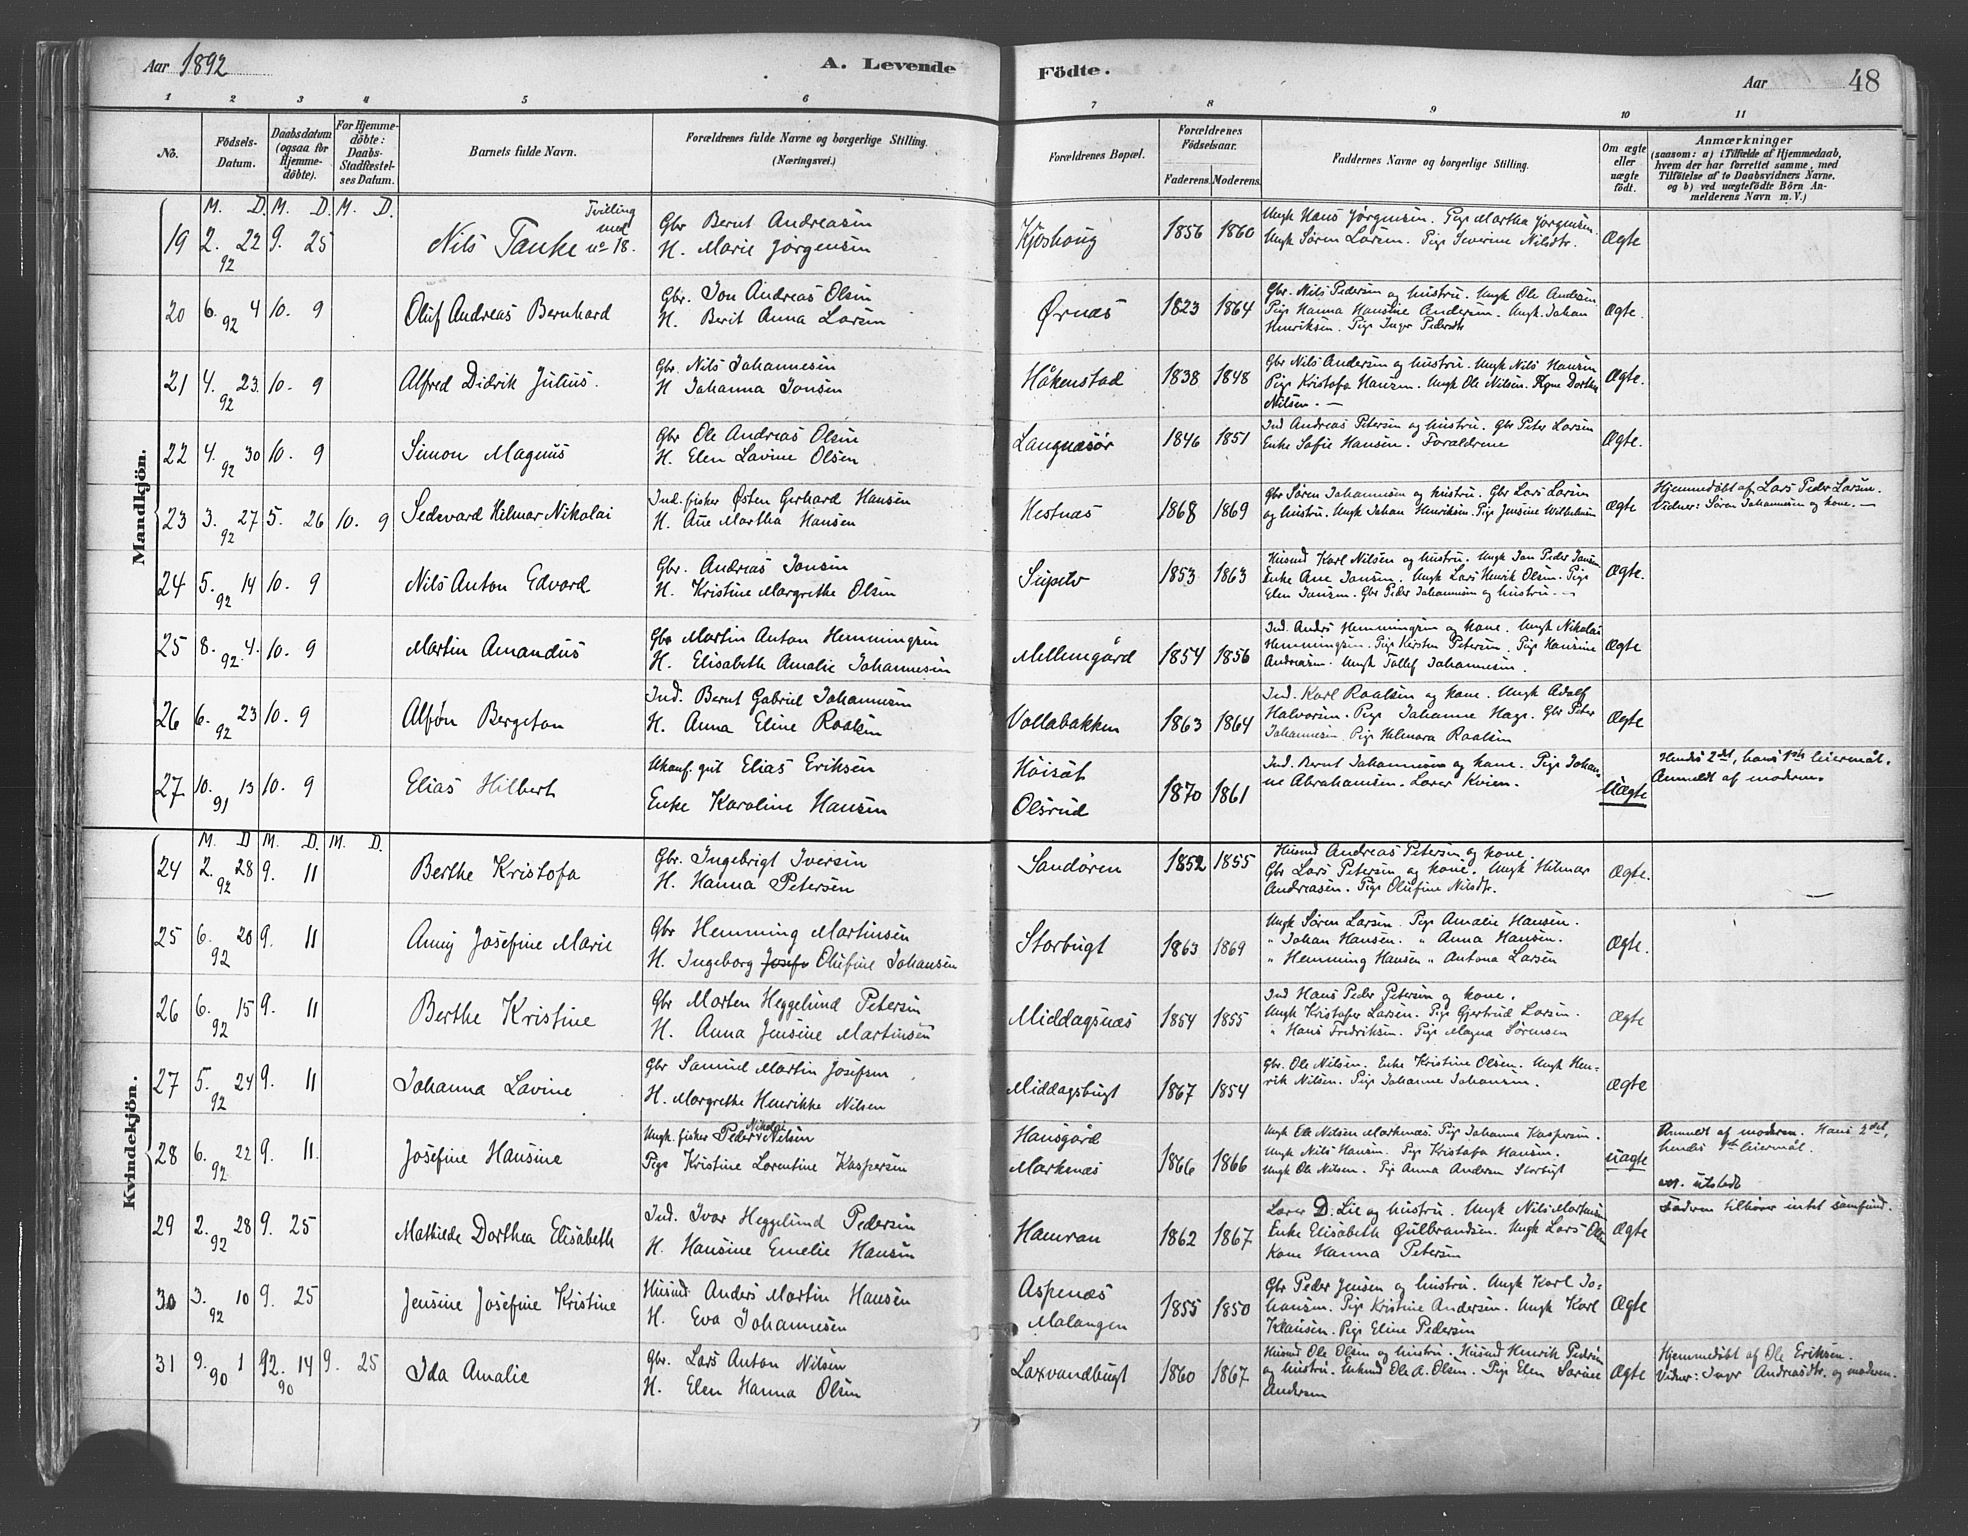 Aar 1892
A. Levende Födte.
Aar 48
1 2 3 4 5 6 7 8 9 10 11
No.
Födsels-Datum.
Daabsdatum (ogsaa for Hjemmedöbte).
For Hjemmedöbte: Daabs-Stadfæstelses Datum.
Barnets fulde Navn.
Forældrenes fulde Navne og borgerlige Stilling. (Næringsvei.)
Forældrenes Bopæl.
Forældrenes Födselsaar.
Faderens. Moderens.
Faddernes Navne og borgerlige Stilling.
Om ægte eller uægte födt.
Anmærkninger
(saasom: a) i Tilfælde af Hjemmedaab, hvem der har forrettet samme, med Tilföielse af to Daabsvidners Navne. og b) ved uægtefödte Börn Anmelderens Navn m. V.)
Mandkjön.
M. D. M. D. M. D.
19 2. 22 92 9. 25 Nils Tanke Tvilling med no 18. Gbr Bernt Andreasen
H. Marie Jørgensen Kjøshoug 1856 1860 Ungk Hans Jørgensen. Pige Martha Jørgensen.
Ungk Søren Larsen. Pige Severine Nilsdtr. Ægte
20 6. 4 92 10. 9 Oluf Andreas Bernhard Gbr. Jon Andreas Olsen
H. Berit Anna Larsen Ørnæs 1823 1864 Gbr. Nils Pedersen og hustru. Ungk Ole Andersen
Pige Hanna Hansine Andersen. Ungk. Johan
Henriksen. Pige Inger Pedersdtr Ægte.
21 4. 23. 92 10. 9 Alfred Didrik Julius. Gbr. Nils Johannesen
H Johanna Jonsen Håkenstad 1838 1848 Gbr Nils Andersen og hustru. Ungk Nils Hansen
Pige Kristofa Hansen. Ungk Ole Nilsen. Dorthe
Nilsen. — Ægte.
22 4. 30 92 10. 9 Simon Magnus Gbr Ole Andreas Olsen
H. Elen Lavine Olsen Langnæsør 1846 1851 Ind Andreas Petersen og hustru. Gbr Peter Larsen
Enke Sofie Hansen. Forældrene Ægte.
23 3. 27 92 5. 26 10. 9 Sedevard Hilmar Nikolai Ind. fisker Østen Gerhard Hansen
H. Ane Martha Hansen Hestnæs 1868 1869 Gbr Søren Johannesen og hustru. Gbr Lars Larsen
og hustru. Ungk Johan Henriksen. Pige Jensine Wilhelmsen Ægte Hjemmedöbt af Lars Peder Larsen.
Vidner: Søren Johannesen og kone. —
24 5. 14 92 10. 9 Nils Anton Edvard Gbr. Andreas Jonsen
H. Kristine Margrethe Olsen 1853 1863 Husmd Karl Nilsen og hustru. Ungk Jon Peder Jonsen
Enke Ane Jonsen. Ungk Lars Henrik Olsen. Pige
Elen Jonsen. Gbr Peder Johannesen og hustru. — Ægte.
25 8. 4. 92 10. 9 Martin Amandus Gbr Martin Anton Hemmingsen
H. Elisabeth Amalie Johannesen Mellemgård 1854 1856 Ind. Anders Hemmingsen og kone. Ungk Nikolai
Hemmingsen. Pige Kirsten Petersen. Pige Hansine
Andreasen. Ungk Tollef Johannesen. Ægte
26 6. 23 92 10. 9 Alføn Bergeton Ind. Bernt Gabriel Johannesen
H. Anna Eline Roalsen Vollabakken 1863 1864 Ind. Karl Roalsen og kone. Ungk Adolf
Halvorsen. Pige Johanne Hage. Gbr Peter
Johannesen. Pige Helmara Roalsen Ægte
27 10. 13 91 10. 9 Elias Hilbert Ukonf. gut Elias Eriksen
Enke Karoline Hansen Høisæt
Olsrud 1870 1861 Ind. Bernt Johannesen og kone. Pige Johan-
ne Abrahamsen. Lærer Kvien. Uægte Hendes 2det, hans 1ste leiermål.
Anmeldt af moderen.
Kvindekjön.
M. D M. D. M. D.
24 2. 28 92 9. 11 Berthe Kristofa Gbr. Ingebrigt Iversen
H. Hanna Petersen Sandøren 1852 1855 Husmd Andreas Petersen og kone.
Gbr Lars Petersen og kone. Ungk Hilmar
Andreasen. Pige Olufine Nilsdtr. Ægte.
25 6. 20 92 9. 11 Anny Josefine Marie Gbr Hemming Martinsen
H. Ingeborg Josefi Olufine Johansen Storbugt 1863 1869 Ungk Søren Larsen. Pige Amalie Hansen.
" Johan Hansen. " Anna Hansen.
" Hemming Hansen " Antona Larsen Ægte.
26 6. 15 92 9. 11 Berthe Kristine Gbr Morten Heggelund Petersen
H. Anna Jensine Martinsen Middagsnæs 1854 1855 Ind Hans Peder Petersen og kone.
Ungk Kristofer Larsen. Pige Gjertrud Larsen.
" Hans Fredriksen. Pige Magna Sørensen Ægte
27 5. 24 92 9. 11 Johanna Lavine Gbr Samuel Martin Josefsen
H. Margrethe Henrikke Nilsen Middagsbugt 1867 1854 Gbr. Ole Nilsen. Enke Kristine Olsen. Ungk Hen-
rik Nilsen. Pige Johanne Johansen. Ægte
28 6. 22 92 9. 11. Josefine Hansine Ungk. fisker Peder Nikolai Nilsen
Pige Kristine Lorentine Kaspersen Hansgård
Marknæs 1866 1866 Ungk Ole Nilsen Marknæs. Pige Johanna Kaspersen.
Ungk Nils Hansen. Pige Kristofa Hansen.
Ungk Ole Nilsen. Pige Anna Andersen Storbugt uægte Anmeldt af moderen. Hans 2det,
hendes 1ste leiermål.
utstedt
29 2. 28 92 9. 25 Mathilde Dorthea Elisabeth Ind. Ivar Heggelund Pedersen
H. Hansine Emelie Hansen Hamran 1862 1867 Lærer D. Lie og hustru. Ungk Nils Mortensen
Enke Elisabeth Gulbrandsen. Ungk Lars Olsen
Kone Hanna Petersen Ægte Faderen tilhører intet samfund.
30 3. 10 92 9. 25 Jensine Josefine Kristine Husmd Anders Martin Hansen
H. Eva Johannesen Aspenæs
Malangen 1855 1850 Gbr Peder Jensen og hustru. Ungk Karl Jo-
hansen. Pige Kristine Andersen. Ungk Karl
Klausen. Pige Eline Pedersen Ægte
31 9. 1 90 92. 14 90 9. 25 Ida Amalie Gbr. Lars Anton Nilsen
H. Elen Hanna Olsen Laxvandbugt 1860 1867 Husmd Ole Olsen og hustru. Husmd Henrik Pedersen
og hustru. Enkmd Ole A. Olsen. Pige Elen Sørine
Andersen Ægte Hjemmedöbt af Ole Eriksen.
Vidner: Inger Andreasdtr. og moderen.